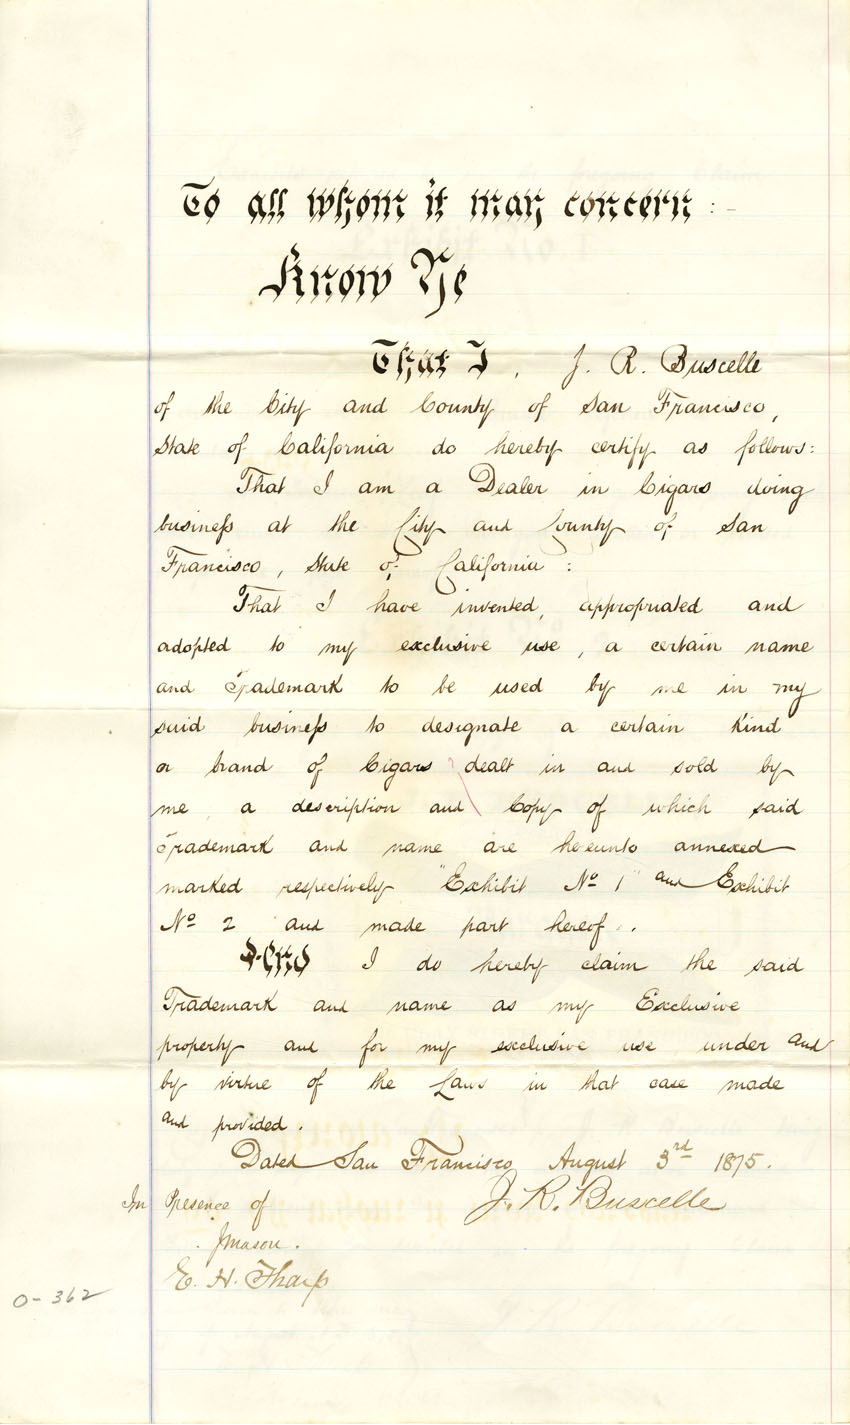 To all whom it may concern :-
Know Ye
That I, J. R. Buscelle
of the City and County of San Francisco,
State of California do hereby certify as follows:
That I am a Dealer in Cigars doing
business at the City and County of San
Francisco, State of California :
That I have invented, appropriated and
adopted to my exclusive use, a certain name
and Trademark to be used by me in my
said business to designate a certain Kind
or brand of Cigars dealt in and sold by
me, a description and Copy of which said
Trademark and name are hereunto annexed
marked respectively "Exhibit No 1" and Exhibit
No 2 and made part hereof.
And I do hereby claim the said
Trademark and name as my Exclusive
property and for my exclusive use under and
by virtue of the Laws in that case made
and provided.
Dated San Francisco August 3rd 1875.
In Presence of J. R. Buscelle
J Mason.
E. H. Tharp
O-362